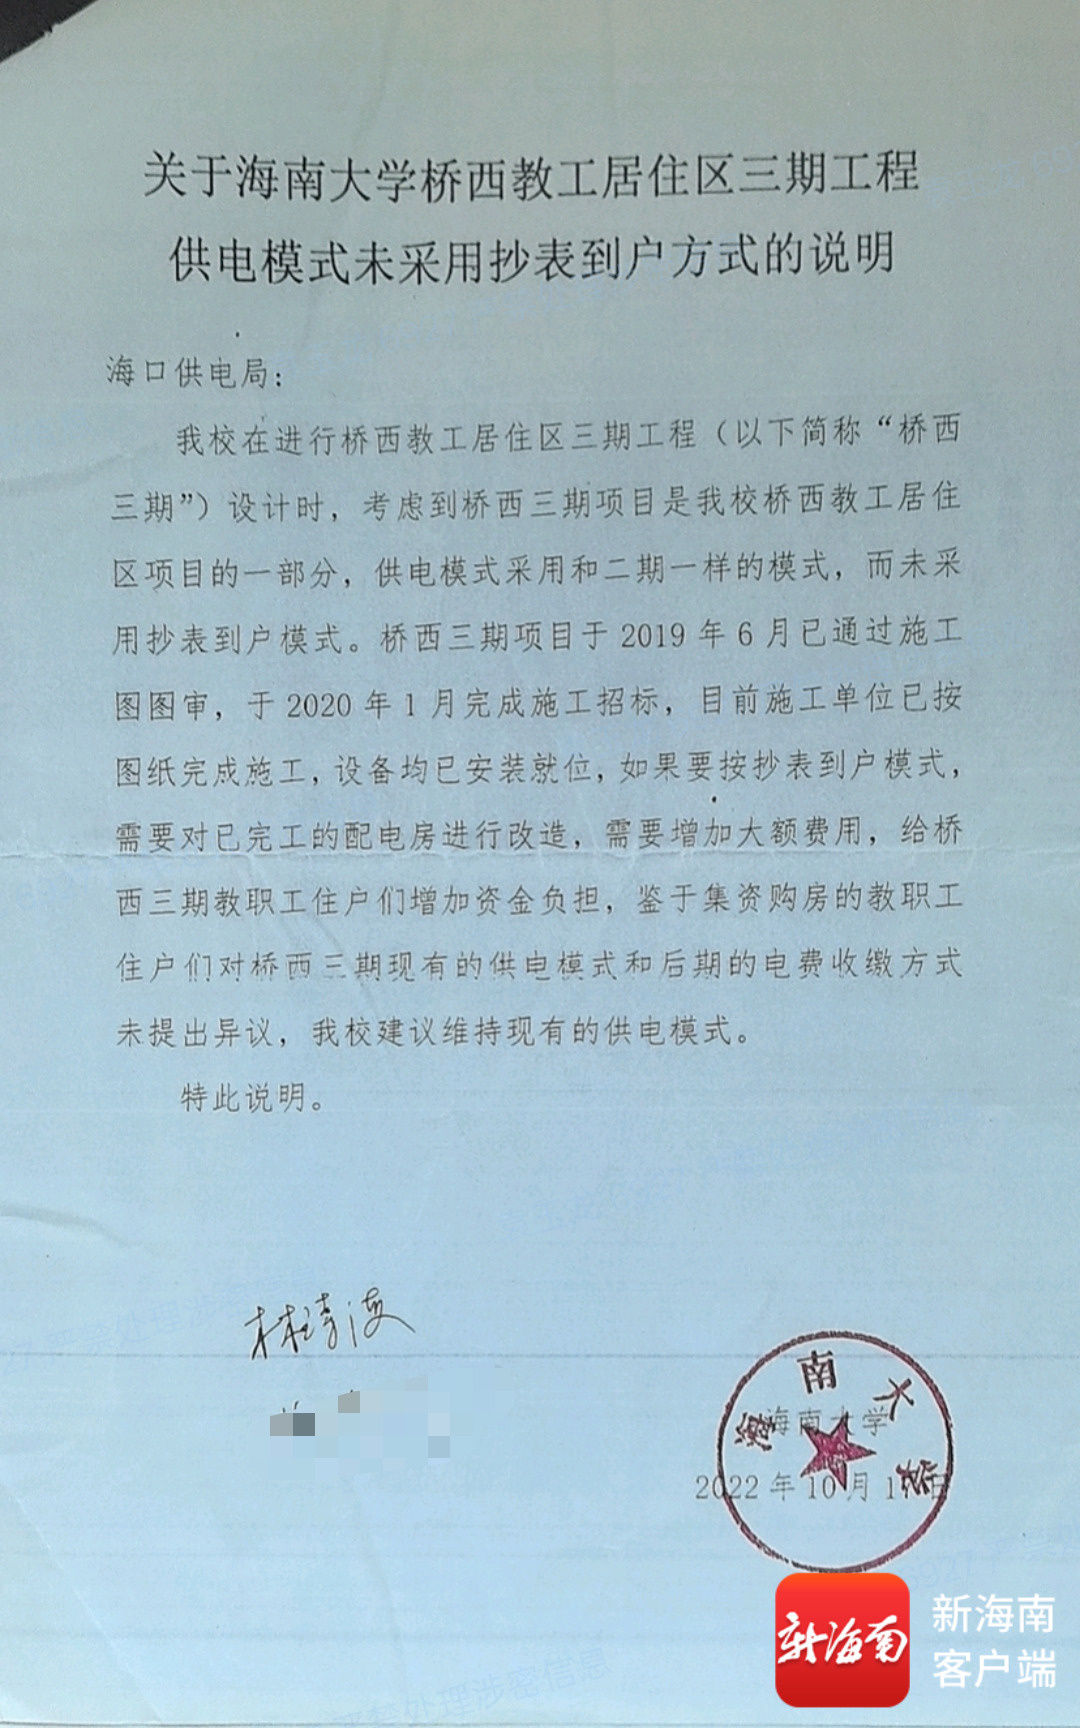 关于海南大学桥西教工居住区三期工程
供电模式未采用抄表到户方式的说明
海口供电局：
我校在进行桥西教工居住区三期工程（以下简称“桥西
三期”）设计时，考虑到桥西三期项目是我校桥西教工居住
区项目的一部分，供电模式采用和二期一样的模式，而未采
用抄表到户模式。桥西三期项目于 2019 年 6 月已通过施工
图图审，于 2020 年 1 月完成施工招标，目前施工单位已按
图纸完成施工，设备均已安装就位，如果要按抄表到户模式，
需要对已完工的配电房进行改造，需要增加大额费用，给桥
西三期教职工住户们增加资金负担，鉴于集资购房的教职工
住户们对桥西三期现有的供电模式和后期的电费收缴方式
未提出异议，我校建议维持现有的供电模式。
特此说明。
海南大学
海南大学
2022 年 10 月 1 日
新海南
新海南
客户端